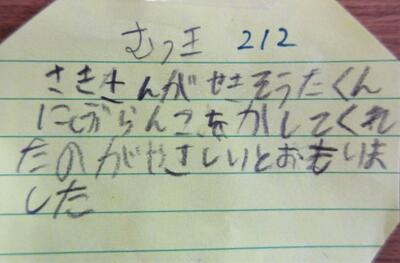 むっ王 212
さきさんがせきそうたくん
にぶらんこをかしてくれ
たのがやさしいとおもいま
した